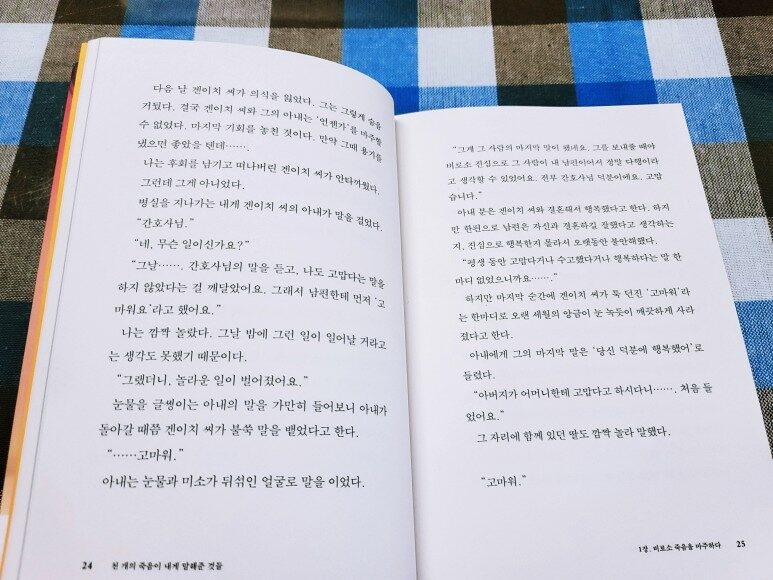 다음 날 겐이치 씨가 의식을 잃었다. 그는 그렇게 숨을
거뒀다. 결국 겐이치 씨와 그의 아내는 ‘언젠가’를 마주할
수 없었다. 마지막 기회를 놓친 것이다. 만약 그때 용기를
냈으면 좋았을 텐데…….
나는 후회를 남기고 떠나버린 겐이치 씨가 안타까웠다.
그런데 그게 아니었다.
병실을 지나가는 내게 겐이치 씨의 아내가 말을 걸었다.
“간호사님.”
“네, 무슨 일이신가요?”
“그날……, 간호사님의 말을 듣고, 나도 고맙다는 말을
하지 않았다는 걸 깨달았어요. 그래서 남편한테 먼저 ‘고
마워요’라고 했어요.”
나는 깜짝 놀랐다. 그날 밤에 그런 일이 일어날 거라고
는 생각도 못했기 때문이다.
“그랬더니, 놀라운 일이 벌어졌어요.”
눈물을 글썽이는 아내의 말을 가만히 들어보니 아내가
돌아갈 때쯤 겐이치 씨가 불쑥 말을 뱉었다고 한다.
“……고마워.”
아내는 눈물과 미소가 뒤섞인 얼굴로 말을 이었다.
24 천 개의 죽음이 내게 말해준 것들
“그게 그 사람의 마지막 말이 됐네요. 그를 보내줄 때야
비로소 진심으로 그 사람이 내 남편이어서 정말 다행이라
고 생각할 수 있었어요. 전부 간호사님 덕분이에요. 고맙
습니다.”
아내 분은 겐이치 씨와 결혼해서 행복했다고 한다. 하지
만 한편으로 남편은 자신과 결혼하길 잘했다고 생각하는
지, 진심으로 행복한지 몰라서 오랫동안 불안해했다.
“평생 동안 고맙다거나 수고했다거나 행복하다는 말 한
마디 없었으니까요…….”
하지만 마지막 순간에 겐이치 씨가 툭 던진 ‘고마워’라
는 한마디로 오랜 세월의 앙금이 눈 녹듯이 깨끗하게 사라
졌다고 한다.
아내에게 그의 마지막 말은 ‘당신 덕분에 행복했어’로
들렸다.
“아버지가 어머니한테 고맙다고 하시다니……, 처음 들
었어요.”
그 자리에 함께 있던 딸도 깜짝 놀라 말했다.
“고마워.”
1장. 비로소 죽음을 마주하다 25